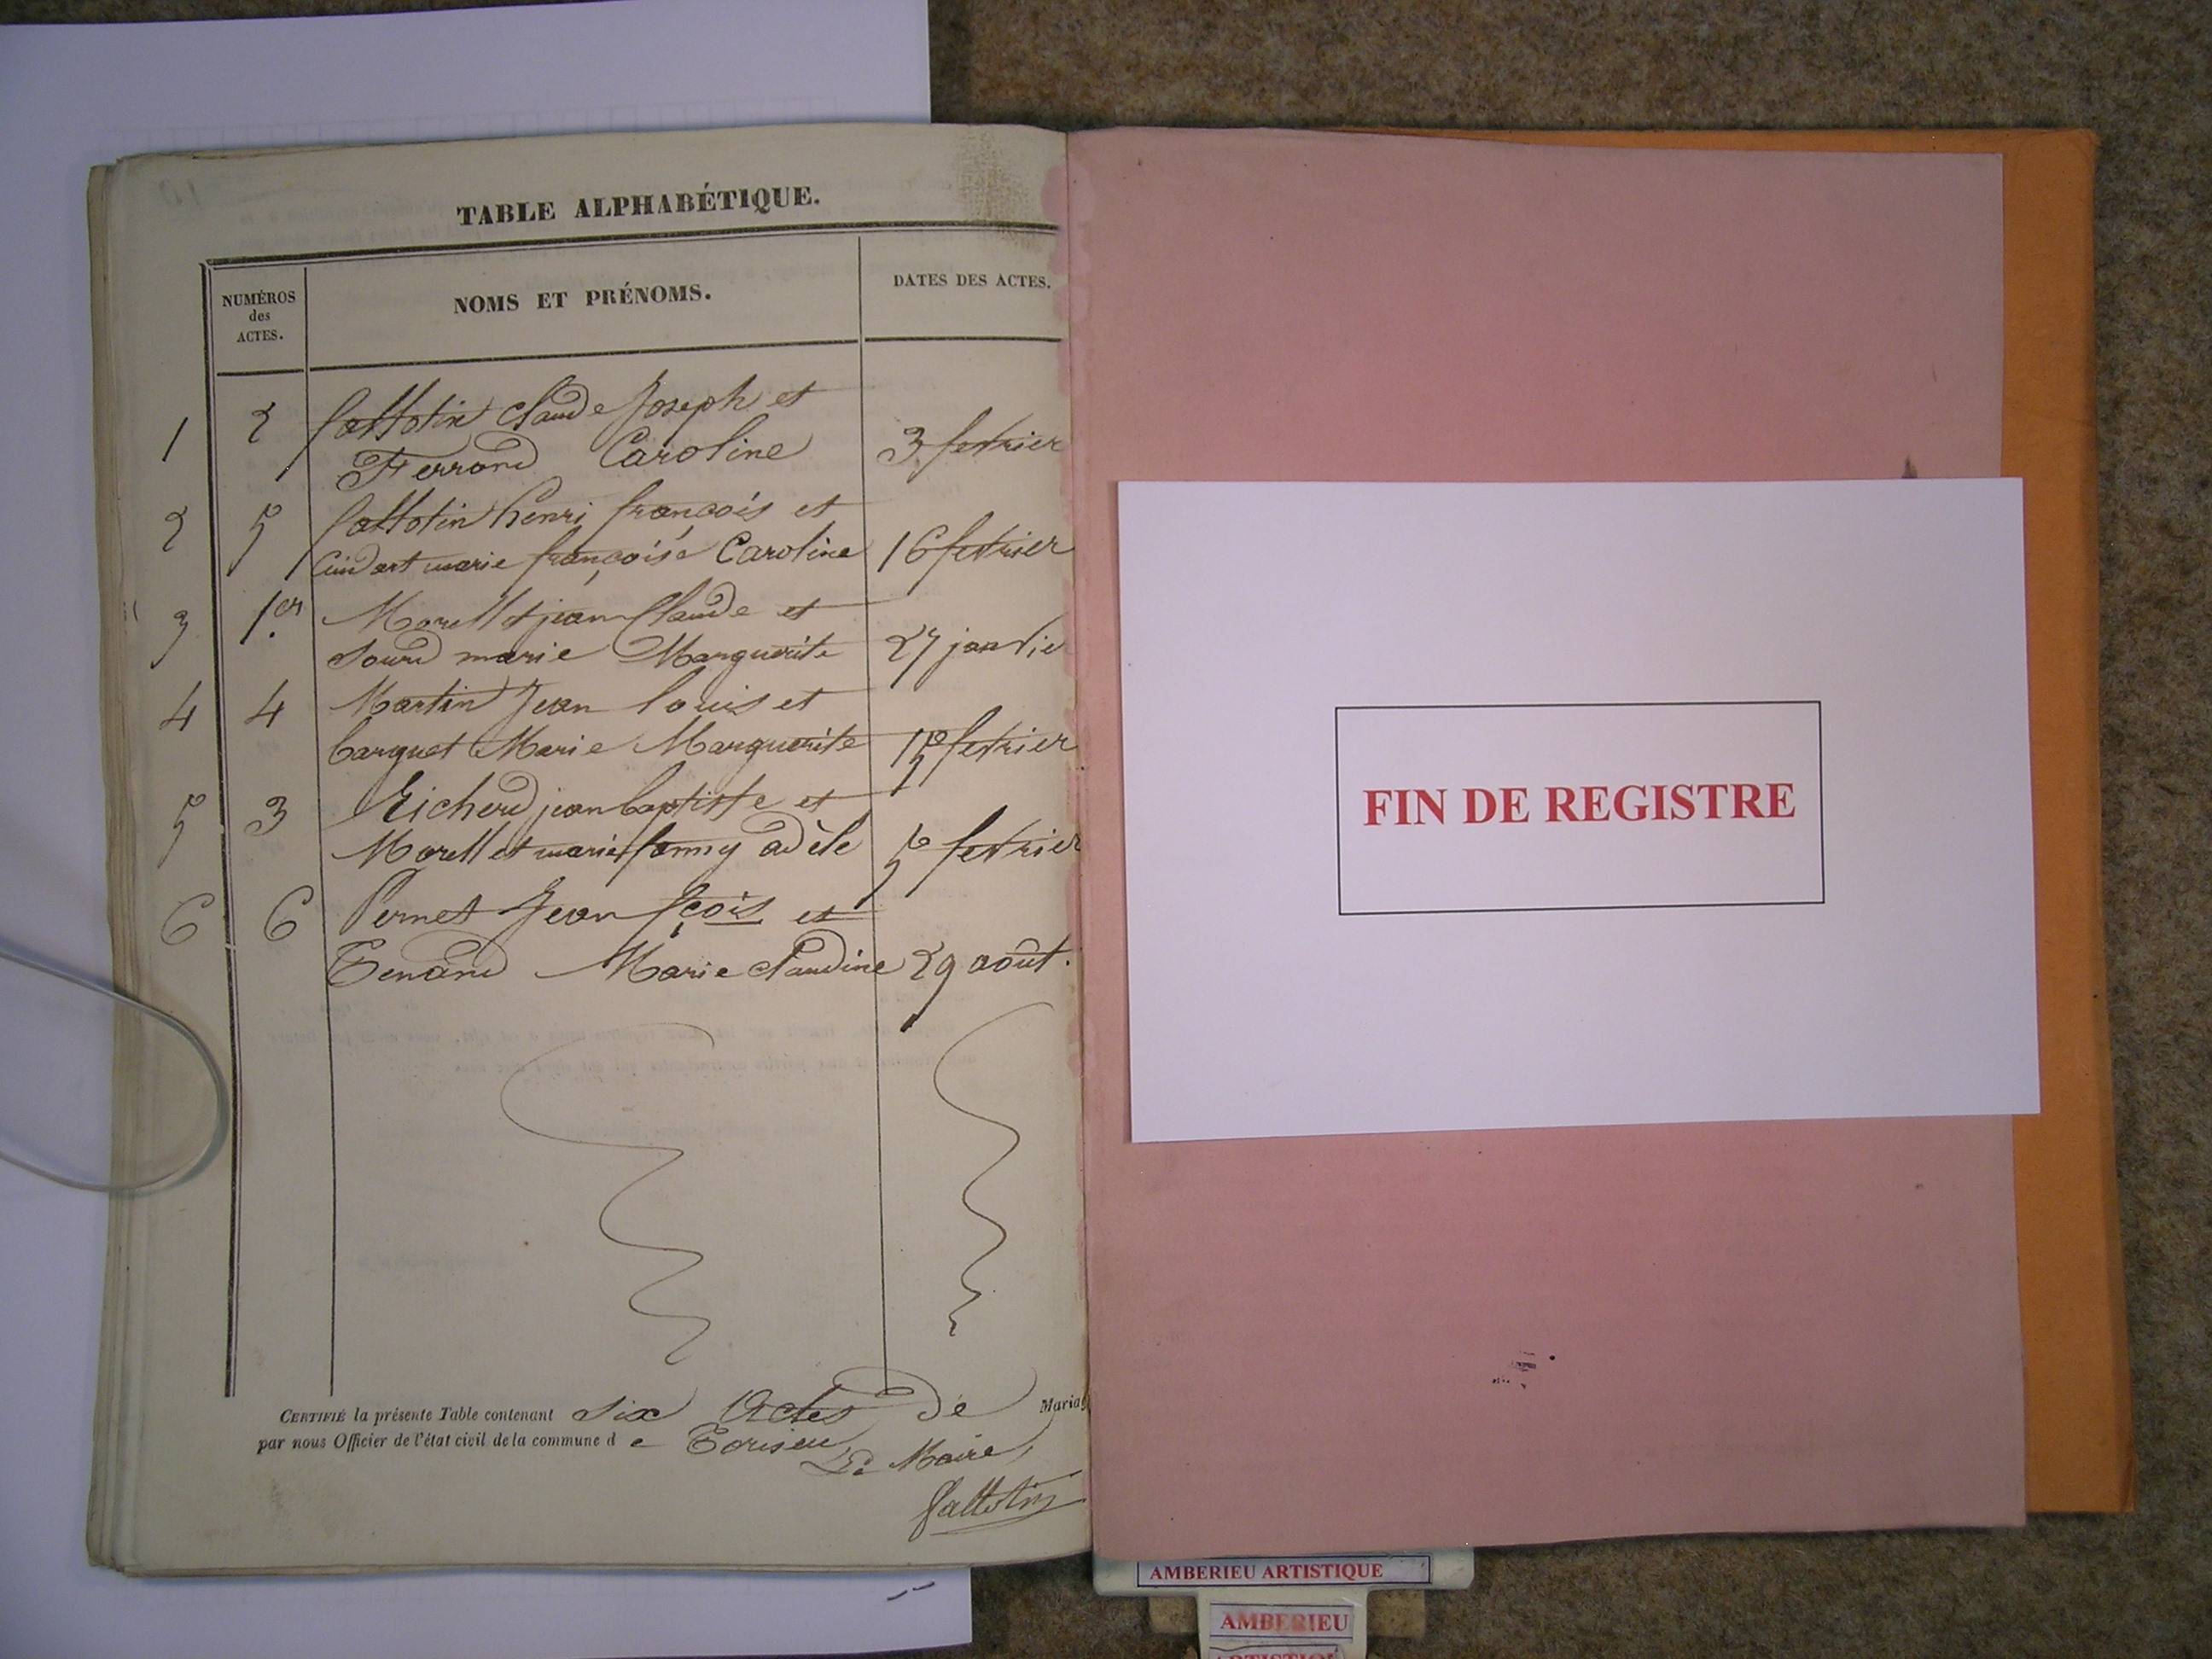 TABLE ALPHABÉTIQUE.
NUMÉROS
des
ACTES.
NOMS ET PRÉNOMS.
DATES DES ACTES.
1 2 Gallotin Claude Joseph et
Ferrand Caroline 3 fevrier
2 5 Gallotin henri françois et
marie françoise Caroline 16 fevrier
3 1er Morellet jean Claude et
Sourd marie Marguerite 27 janvier
4 4 Martin Jean louis et
Marie Marguerite 15 fevrier
5 3 Richerd jean baptiste et
Morellet marie fanny adèle 5 fevrier
6 6 Pernet Jean fçois et
Tenand Marie claudine 29 août.
CERTIFIÉ la présente Table contenant six Actes de Mariag
par nous Officier de l'état civil de la commune d e Torcieu
Le Maire,
Gallotin
FIN DE REGISTRE
AMBERIEU ARTISTIQUE
AMBERIEU
ARTISTIQUE